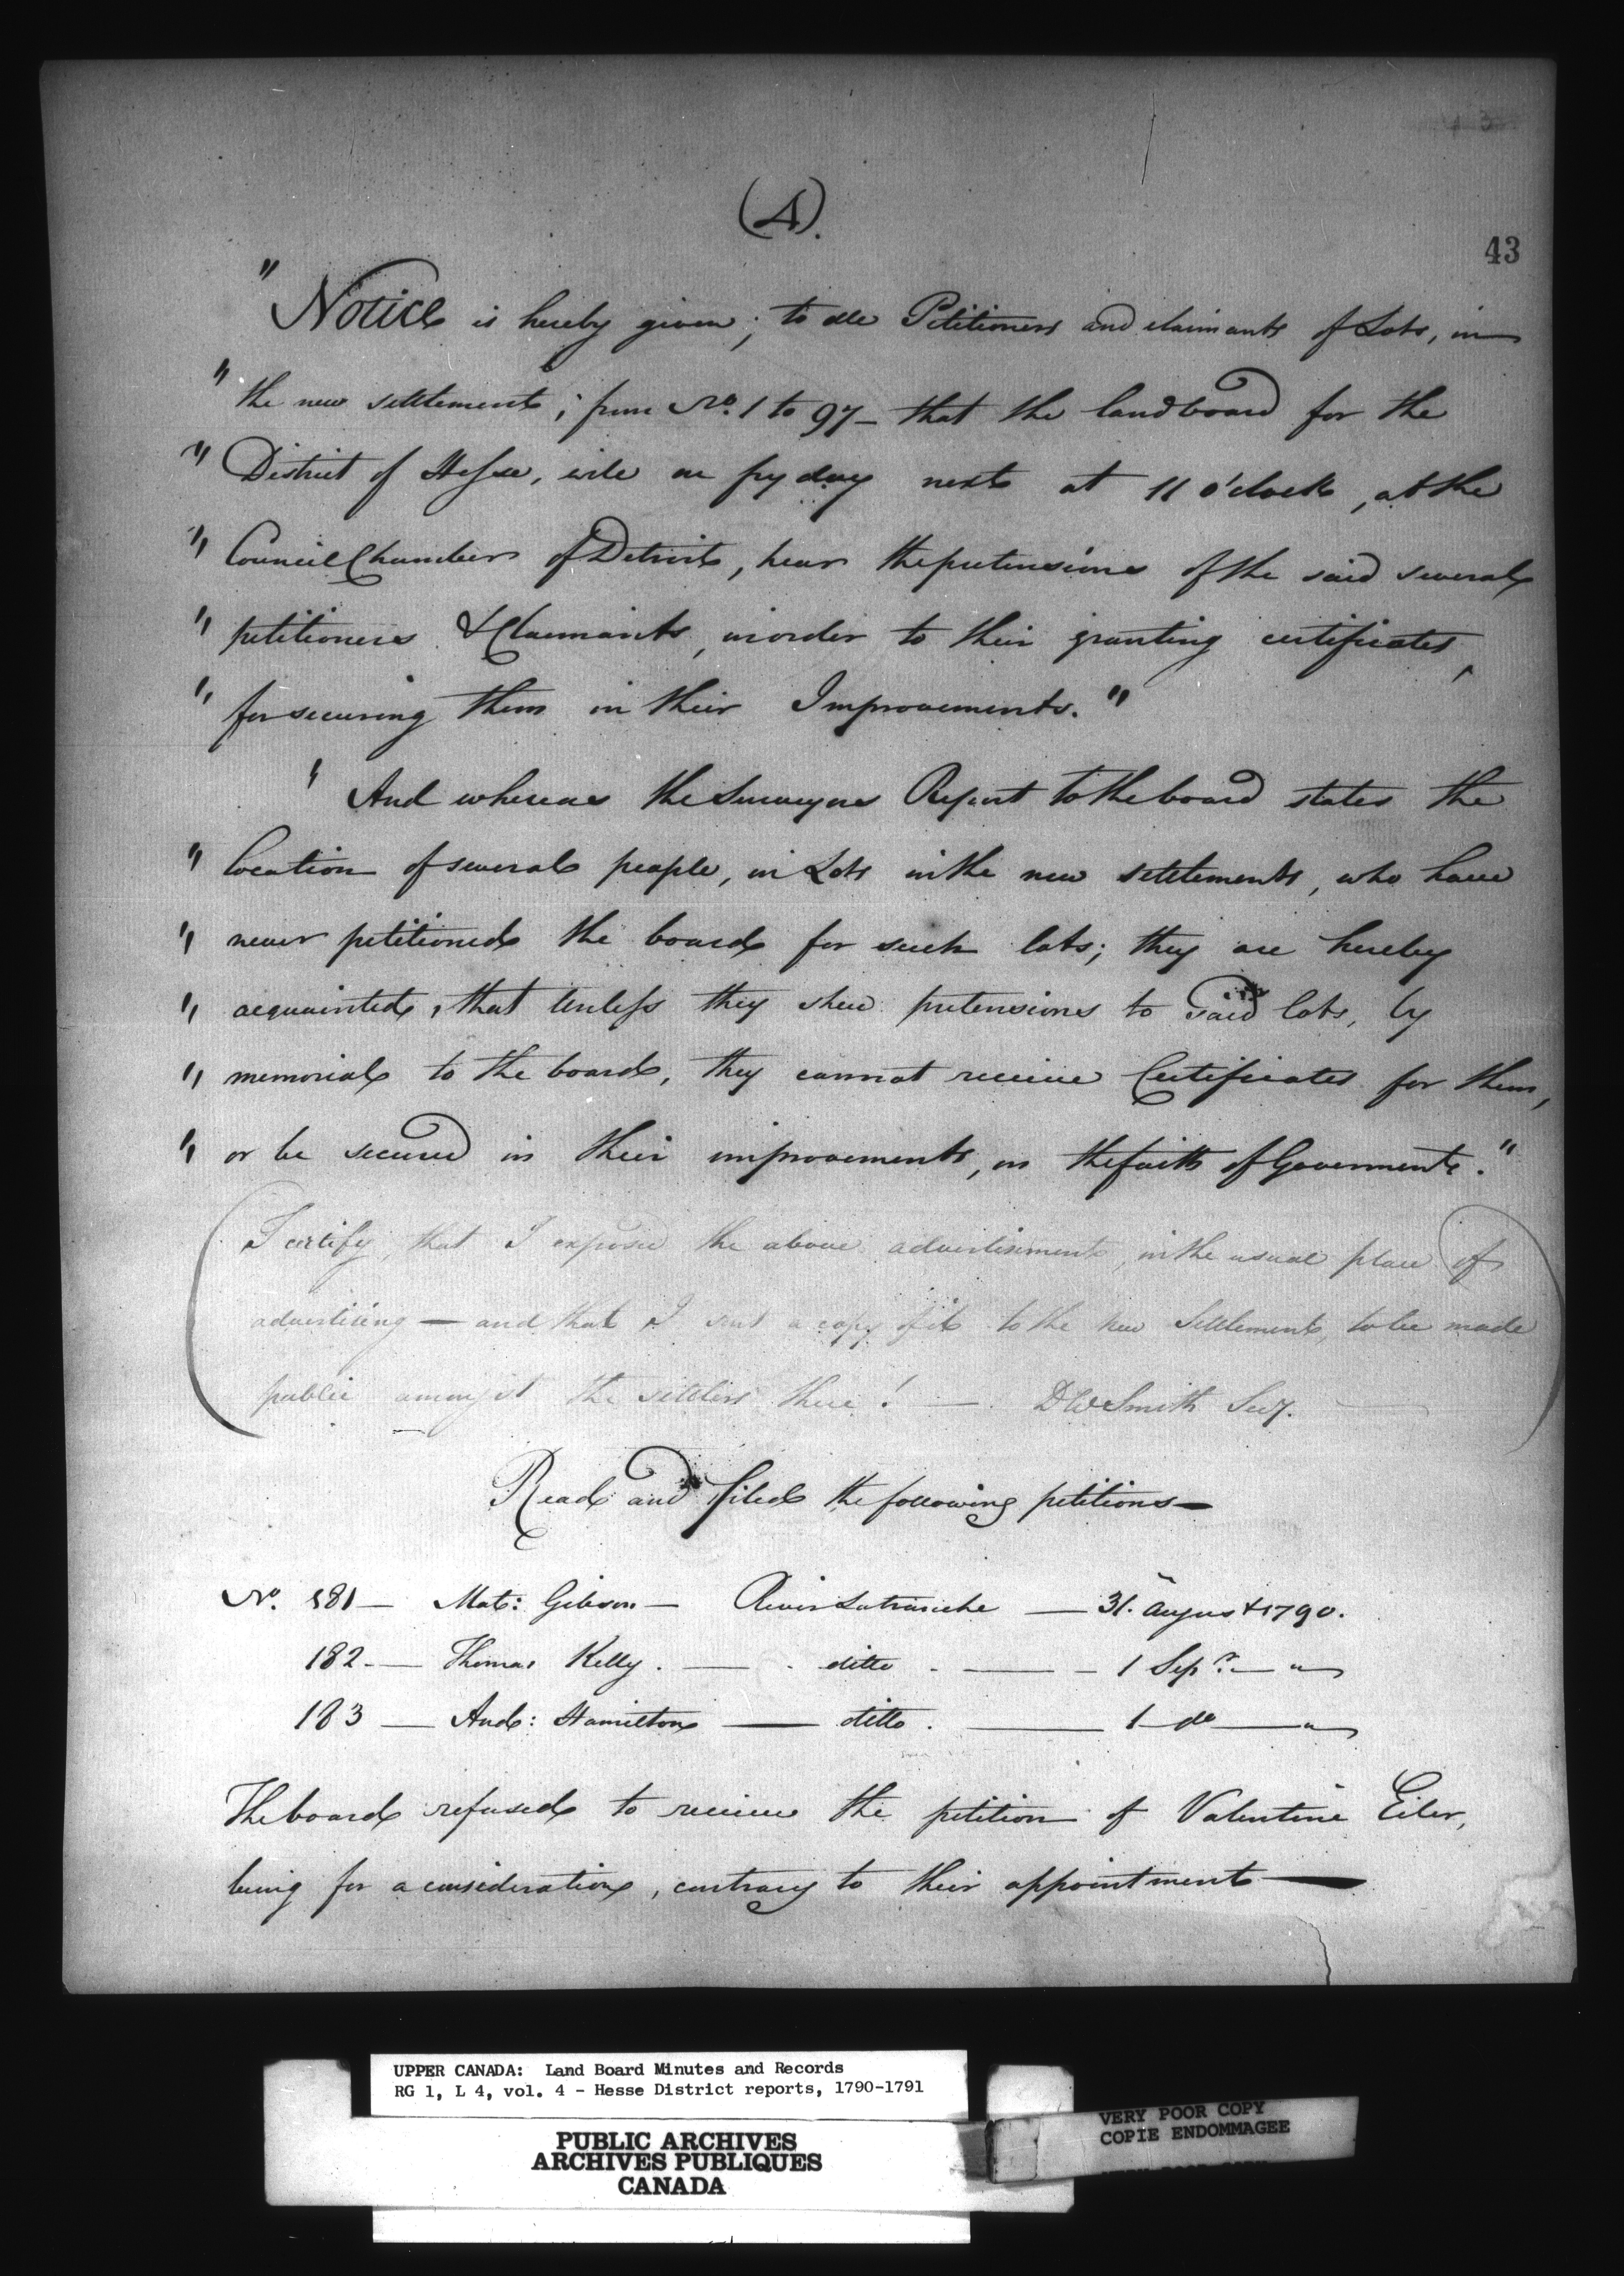 (A).
43
"Notice is hereby given; to all Petitioners and claimants of Lots, in
" the new settlement; from No. 1 to 97 - that the land board for the
" District of Hesse, will on fryday next at 11 o'clock, at the
" Council Chamber of Detroit, hear the pretensions of the said several
" petitioners & Claimants, in order to their granting certificates,
" for securing them in their Improvements."
" And whereas the Surveyors Report to the board states the
" location of several people, in Lots in the new settlements, who have
" never petitioned the board for such lots; they are hereby
" acquainted, that Unless they shew pretensions to said lots, by
" memorial to the board, they cannot receive Certificates for them,
" or be secured in their improvements, on the faith of Government."
(I certify, that I exposed the above advertisement, in the usual place of
advertising — and that I sent a copy of it to the new Settlement, to be made
public amongst the settlers there! — DWSmith Secy. —)
Read and filed the following petitions —
No. 181 — Mat: Gibson — River Latranche — 31. August 1790.
182 — Thomas Kelly. — ditto. — 1 Sepr. — "
183 — And: Hamilton — ditto. — 1 do — "
The board refused to receive the petition of Valentine Eiler,
being for a consideration, contrary to their appointment —
UPPER CANADA: Land Board Minutes and Records
RG 1, L 4, vol. 4 - Hesse District reports, 1790-1791
PUBLIC ARCHIVES
ARCHIVES PUBLIQUES
CANADA
VERY POOR COPY
COPIE ENDOMMAGEE